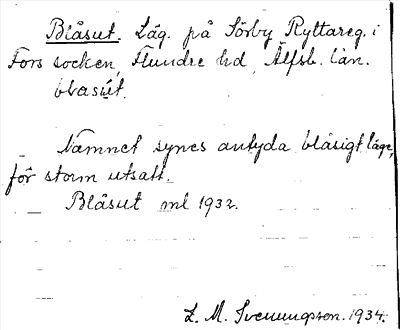 Blåsut. Låg. på Sörby Ryttareg. i
Fors socken, Flundre hd, Älfsb. län.
blasút.
Namnet synes antyda blåsigt läge,
för storm utsatt.
Blåsut ml 1932.
L. M. Svenungsson. 1934.